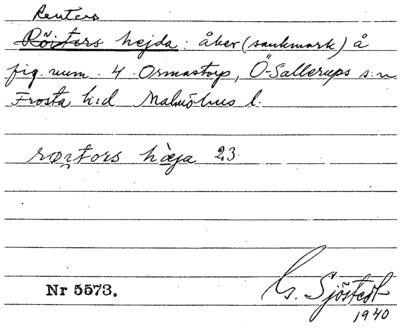 Reuters
Röiters hejda: åker (sankmark) å
fig. num. 4 Ormastorp, Ö. Sallerups s:n
Frosta h:d Malmöhus l.
rœitors hæja 23
Nr 5573.
G. Sjöstedt
1940